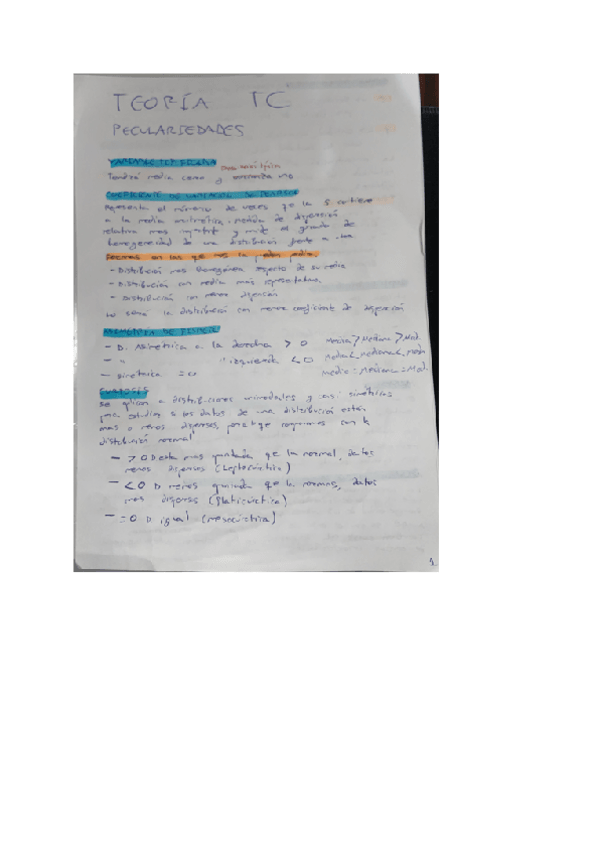 TEORÍA TC
PECULARIEDADES
VARIABLE TIPIFICADA
Tendrá media cero y varianza uno
COEFICIENTE DE VARIACIÓN DE PEARSON
Representa el número de veces que la S contiene
a la media aritmética. medida de dispersión
relativa mas y mide el grado de
homogeneidad de una distribución frente a otra
- Distribución mas homogénea respecto de su media
- Distribución con media más representativa
- Distribución con menor dispersión
será la distribución con menor coeficiente de dispersión
ASIMETRÍA DE FISHER
- D. Asimetrica a la derecha > 0 Media > Mediana > Mod.
- " " izquierda < 0 Media < mediana < Mod
- Simetrica = 0 Media = Mediana = Mod.
CURTOSIS
Se aplican a distribuciones unimodales y casi simétricas
para estudiar si los datos de una distribución están
mas o menos dispersos, para que comparamos con la
distribución normal
- > 0 D esta mas apuntada que la normal, datos
menos dispersos (Leptocúrtica)
- < 0 D menos apuntada que la normal, datos
mas dispersos (Platicúrtica)
- = 0 D igual (mesocúrtica)
1